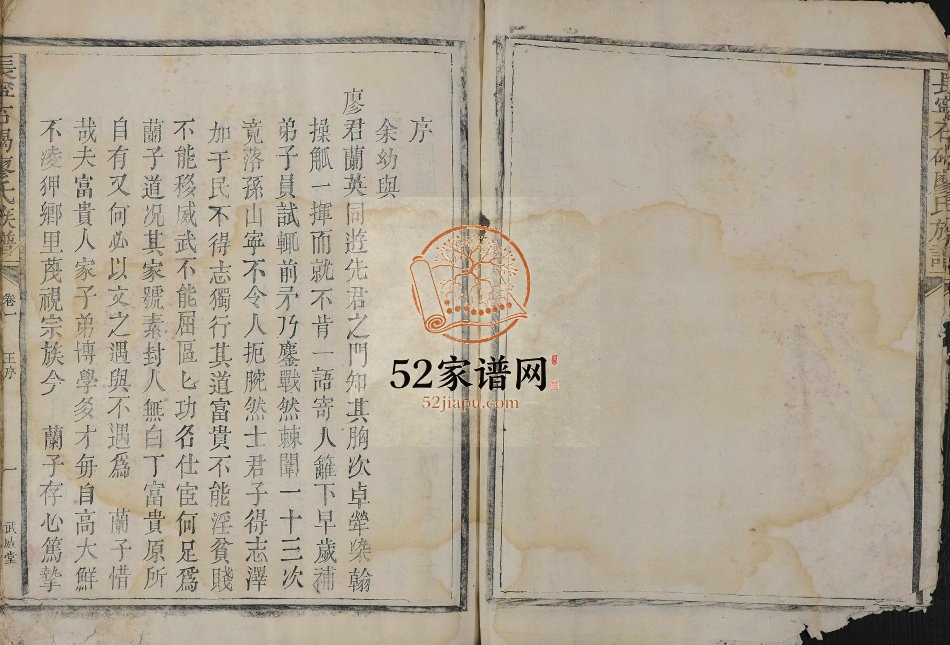 序
余幼與
廖君蘭英同遊先君之門知其胸次卓犖染翰
操觚一揮而就不肯一語寄人籬下早歲補
弟子員試輒前矛乃鏖戰然棘闈一十三次
竟落孫山寧不令人扼腕然士君子得志澤
加于民不得志獨行其道富貴不能淫貧賤
不能移威武不能屈區匕功名仕宦何足爲
蘭子道况其家號素封人無白丁富貴原所
自有又何必以文之遇與不遇爲 蘭子惜
哉夫富貴人家子弟博學多才每自高大鮮
不凌狎鄉里蔑視宗族今 蘭子存心篤摯
長寧石碣廖氏族譜 卷一 王序 一 武威堂
長寧石碣廖氏族譜
52家谱网
52jiapu.com